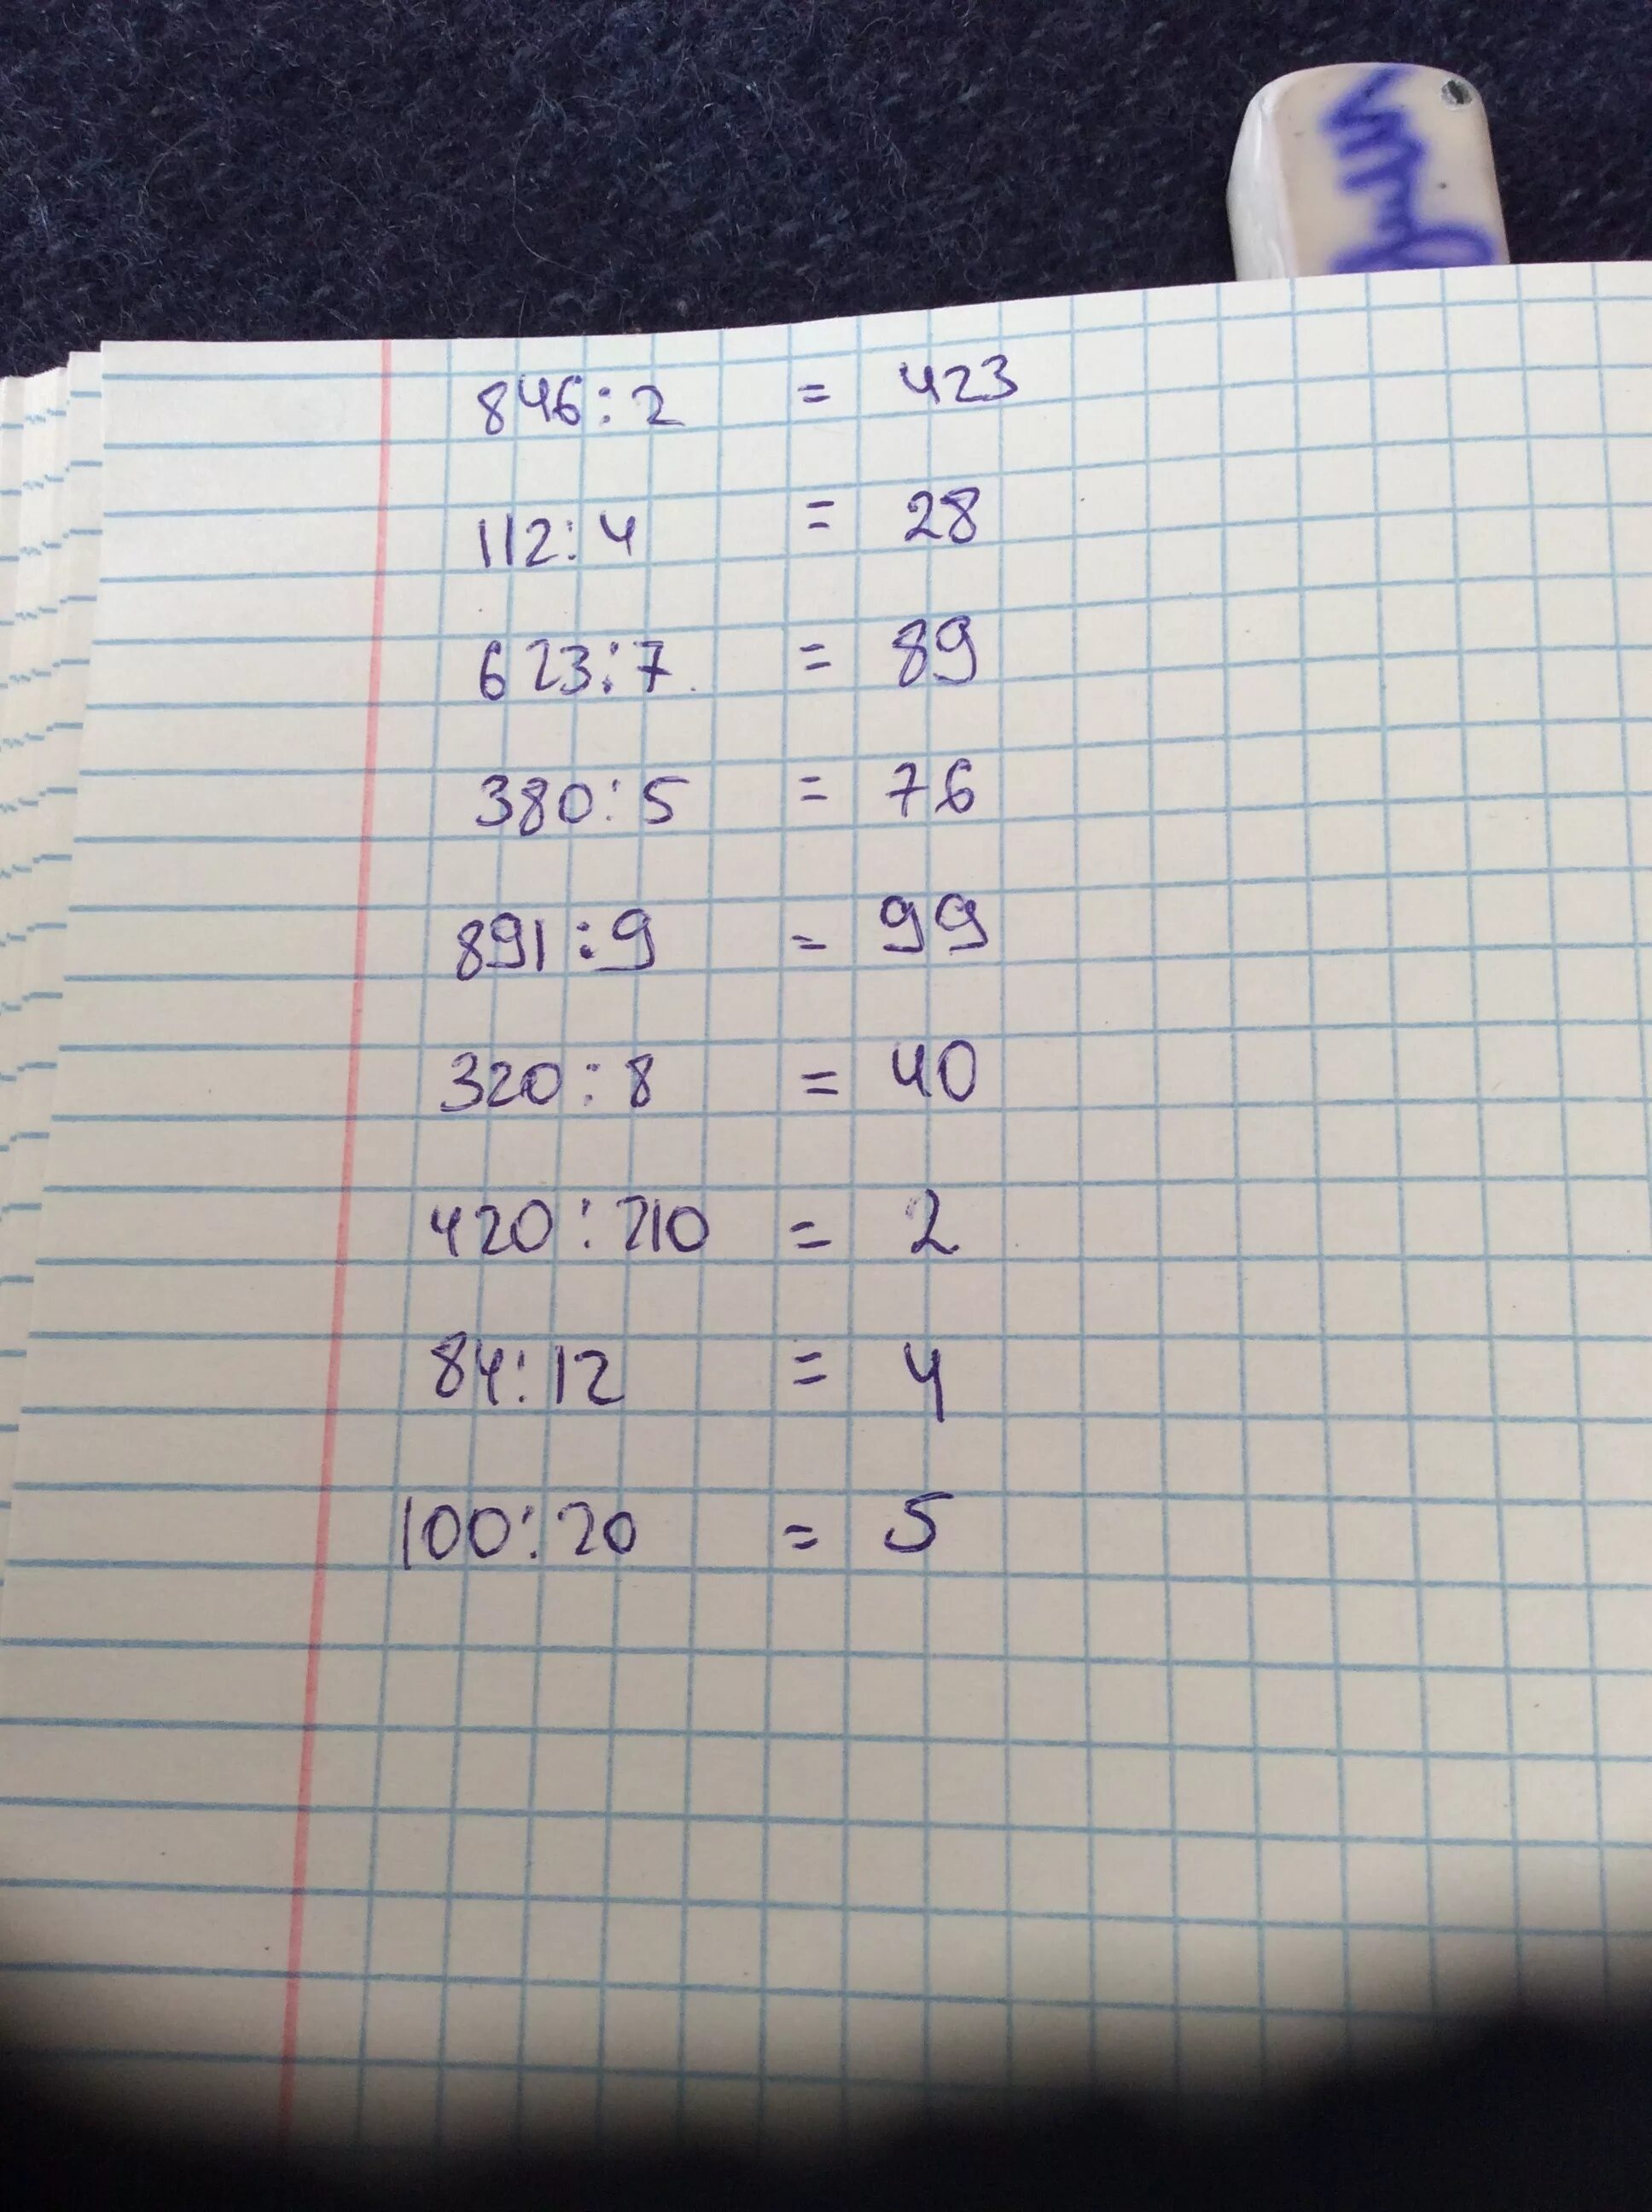 846:2 = 423
112:4 = 28
623:7 = 89
380:5 = 76
891:9 = 99
320:8 = 40
420:210 = 2
84:12 = 4
100:20 = 5